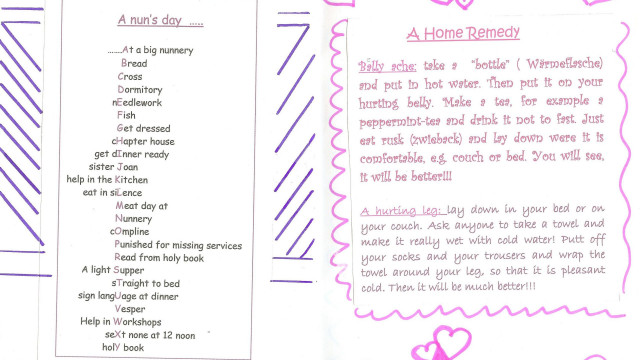 A nun's day .....
.......At a big nunnery
Bread
Cross
Dormitory
nEedlework
Fish
Get dressed
cHapter house
get dInner ready
sister Joan
help in the Kitchen
eat in siLence
Meat day at
Nunnery
cOmpline
Punished for missing services
Read from holy book
A light Supper
sTraight to bed
sign langUage at dinner
Vesper
Help in Workshops
seXt none at 12 noon
holY book
A Home Remedy
Bally ache: take a "bottle" ( Wärmeflasche)
and put in hot water. Then put it on your
hurting belly. Make a tea, for example a
peppermint-tea and drink it not to fast. Just
eat rusk (zwieback) and lay down were it is
comfortable, e.g. couch or bed. You will see,
it will be better!!!
A hurting leg: lay down in your bed or on
your couch. Ask anyone to take a towel and
make it really wet with cold water! Putt off
your socks and your trousers and wrap the
towel around your leg, so that it is pleasant
cold. Then it will be much better!!!